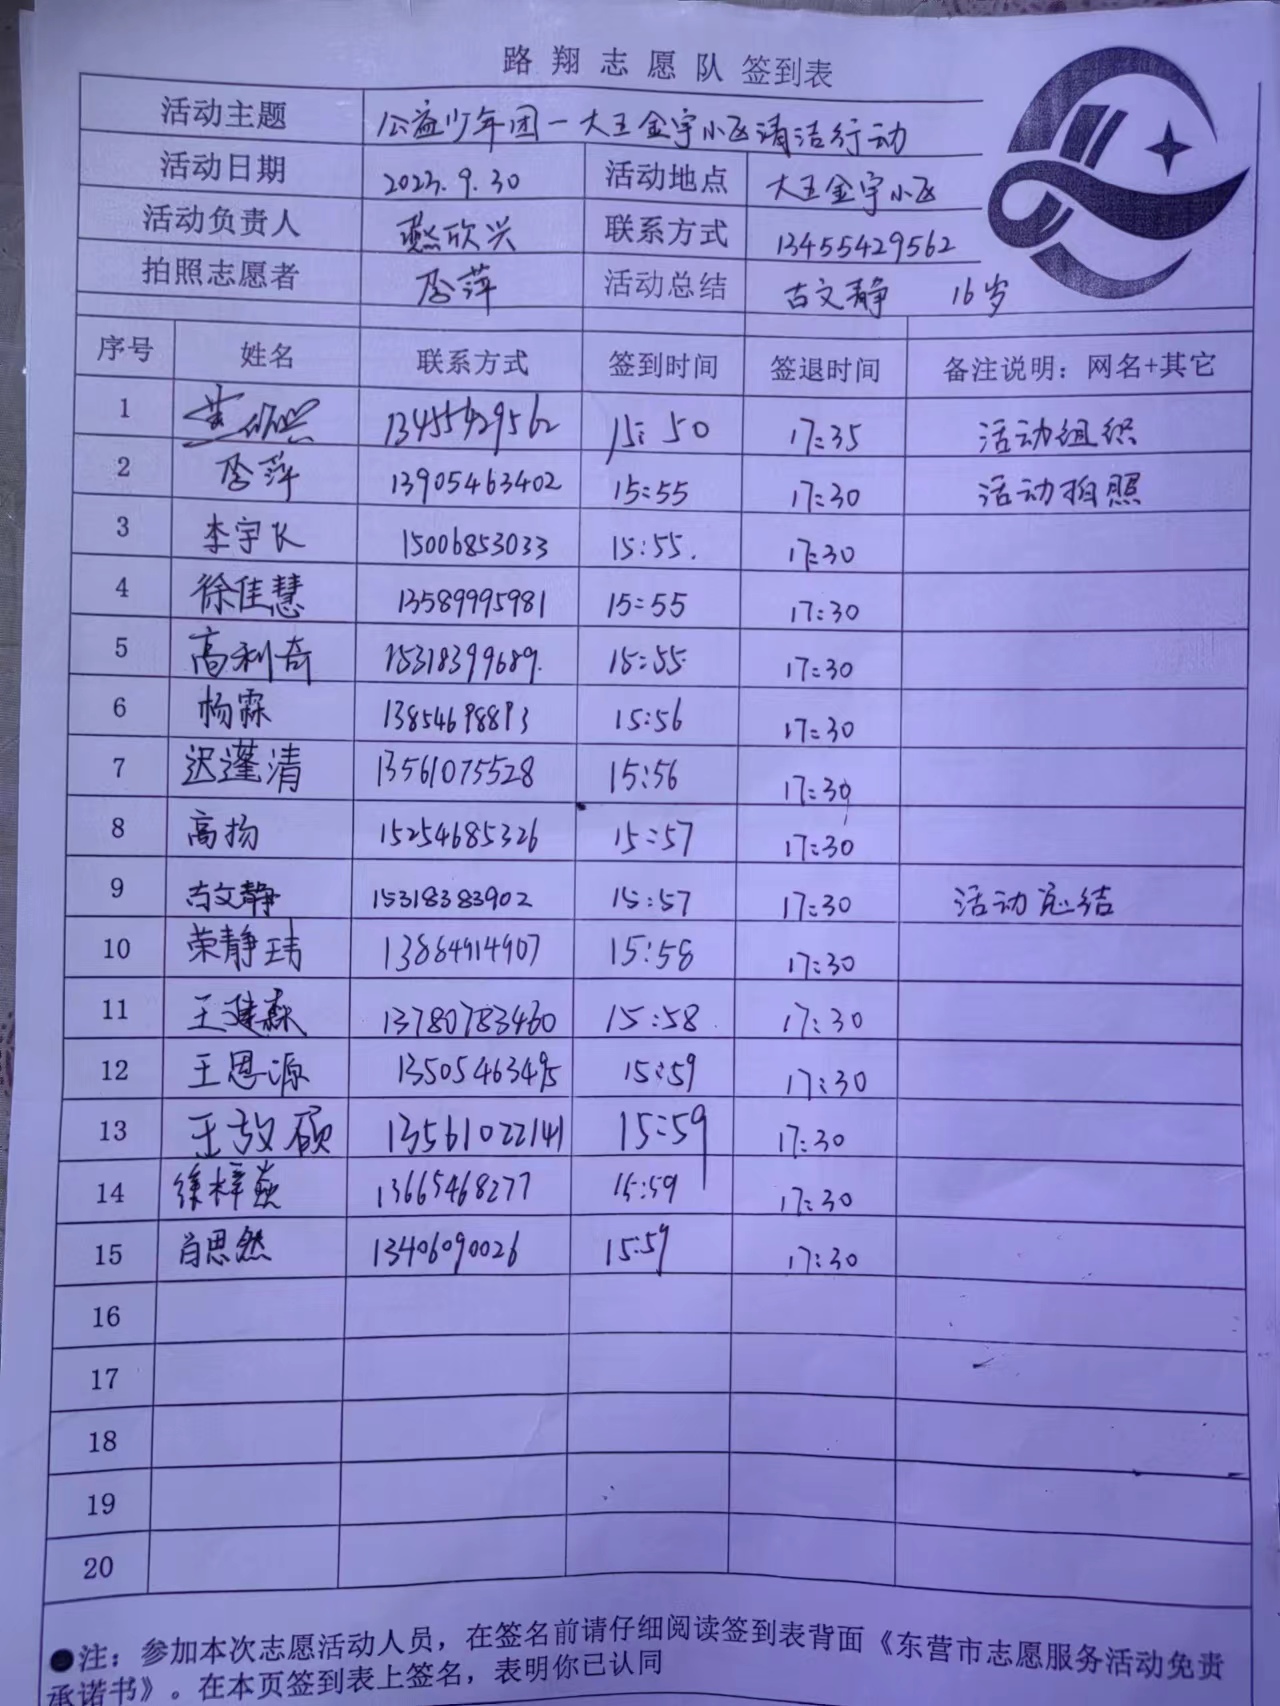 路翔志愿队 签到表
活动主题 公益少年团一大王金宇小区清洁行动
活动日期 2023.9.30 活动地点 大王金宇小区
活动负责人 燕欣兴 联系方式 13455429562
拍照志愿者 李萍 活动总结 古文静 16岁
序号 姓名 联系方式 签到时间 签退时间 备注说明：网名+其它
1 13455429562 15:50 17:35 活动组织
2 李萍 13905463402 15:55 17:30 活动拍照
3 李宇 15006853033 15:55. 17:30
4 徐佳慧 13589995981 15:55 17:30
5 高利奇 15318399689. 15:55 17:30
6 杨霖 13854698893 15:56 17:30
7 迟蓬清 13561075528 15:56 17:30
8 高扬 15254685326 15:57 17:30
9 古文静 15318383902 15:57 17:30 活动总结
10 荣静玮 13864914907 15:58 17:30
11 王建森 13780783460 15:58 17:30
12 王恩源 13505463495 15:59 17:30
13 王硕 13561022141 15:59 17:30
14 徐梓焱 13665468277 15:59 17:30
15 肖思然 13406090026 15:59 17:30
16
17
18
19
20
●注：参加本次志愿活动人员，在签名前请仔细阅读签到表背面《东营市志愿服务活动免责
承诺书》。在本页签到表上签名，表明你已认同